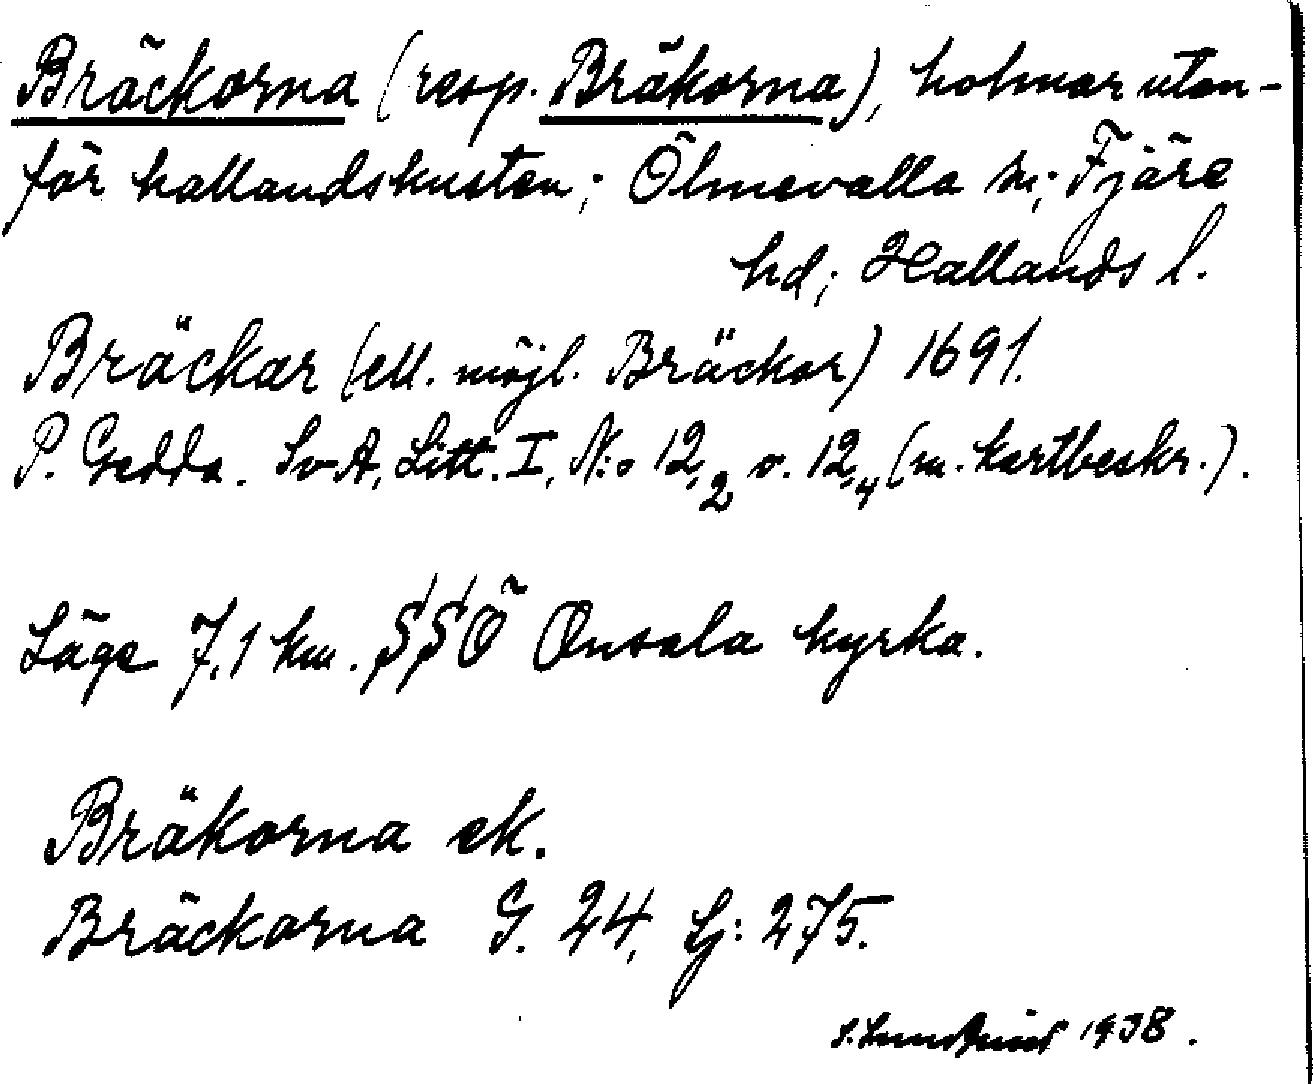 Bräckorna (resp. Bräkorna), holmar utan-
för hallandskusten; Ölmevalla sn; Fjäre
hd; Hallands l.
Bräckar (ell. möjl. Bräckor) 1691.
P. Gedda. SvA, Litt. I, N:o 12,2 o. 12,4 (m. kartbeskr.).
Läge 7,1 km. SSÖ Onsala kyrka.
Bräkorna ek.
Bräckorna G. 24, Lj: 275.
1938.